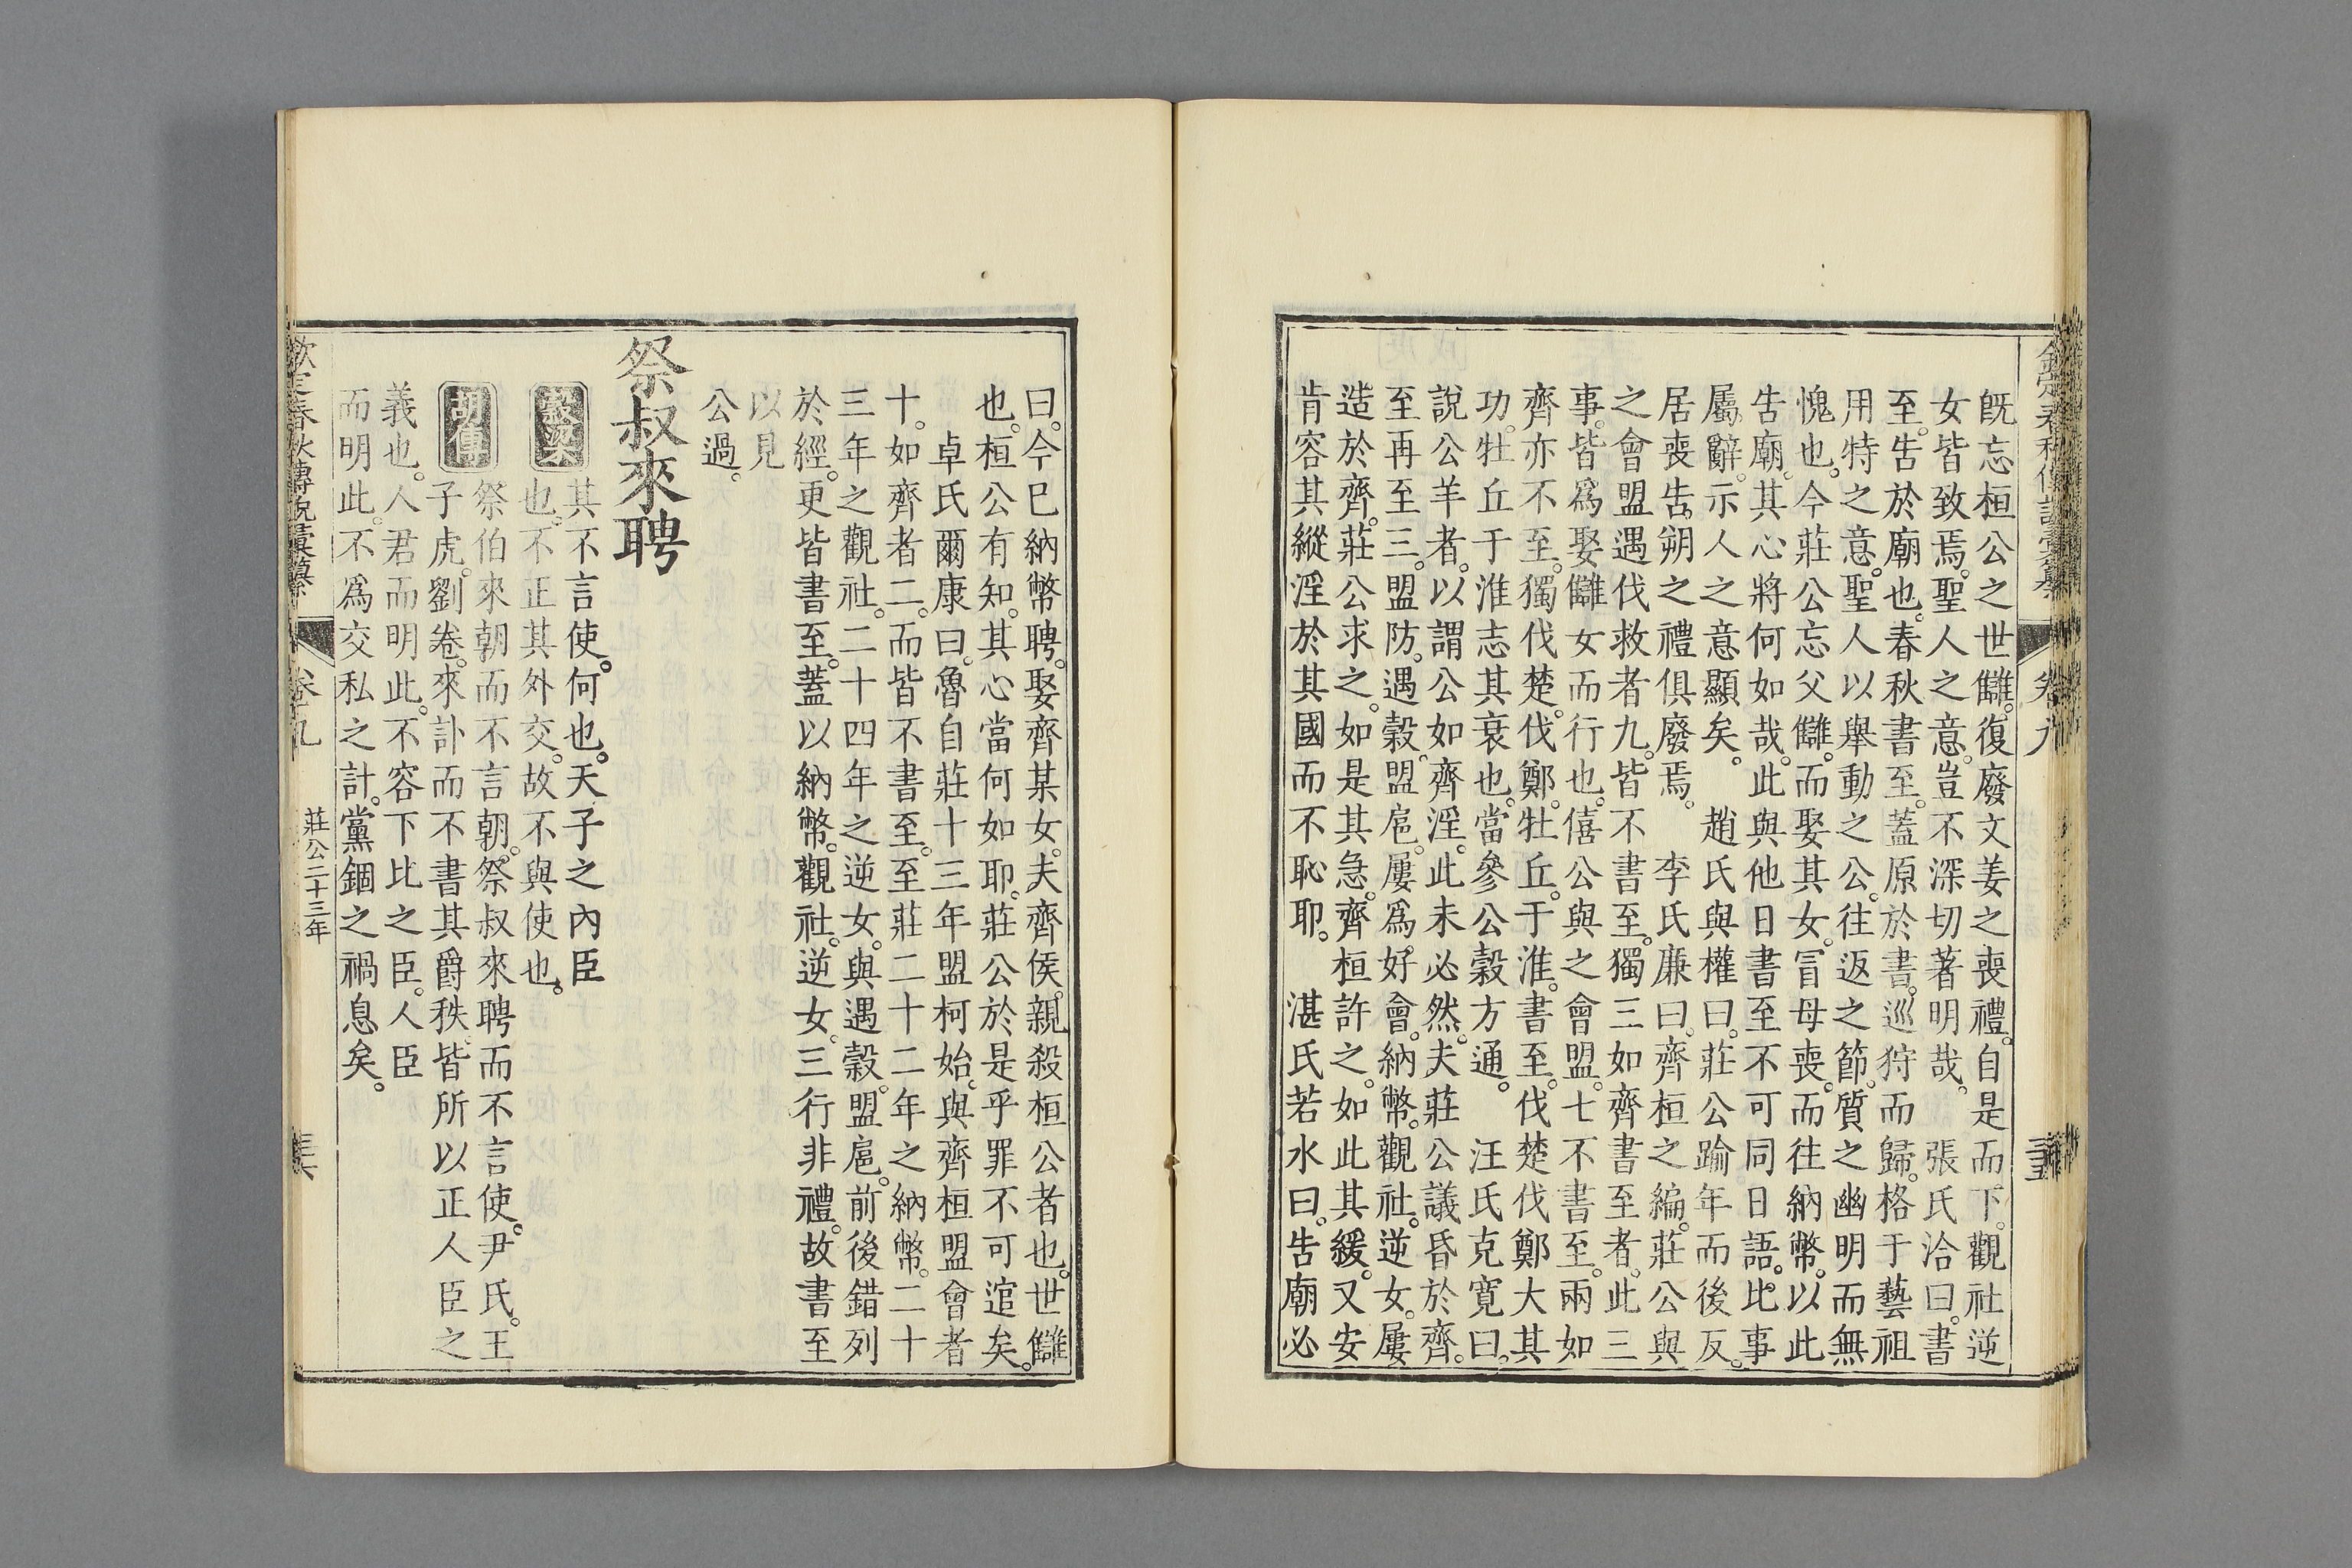 既忘桓公之世讎。復廢文姜之喪禮。自是而下。觀社逆
女皆致焉。聖人之意。豈不深切著明哉。　張氏洽曰。書
至。告於廟也。春秋書至。蓋原於書。巡狩而歸。格于藝祖
用特之意。聖人以舉動之公。往返之節。質之幽明而無
愧也。今莊公忘父讎。而娶其女。冒母喪。而往納幣。以此
告廟。其心將何如哉。此與他日書至不可同日語。比事
屬辭。示人之意顯矣。　趙氏與權曰。莊公踰年而後反。
居喪告朔之禮俱廢焉。　李氏廉曰。齊桓之編。莊公與
之會盟遇伐救者九。皆不書至。獨三如齊書至者。此三
事。皆爲娶讎女而行也。僖公與之會盟。七不書至。兩如
齊亦不至。獨伐楚。伐鄭。牡丘。于淮。書至。伐楚伐鄭大其
功。牡丘于淮志其衰也。當參公穀方通。　汪氏克寬曰。
說公羊者。以謂公如齊淫。此未必然。夫莊公議昏於齊。
至再至三。盟防。遇穀。盟扈。屢爲好會。納幣。觀社。逆女。屢
造於齊。莊公求之。如是其急。齊桓許之。如此其緩。又安
肯容其縱淫於其國而不恥耶。　湛氏若水曰。告廟必
曰。今已納幣聘。娶齊某女。夫齊侯。親殺桓公者也。世讎
也。桓公有知。其心當何如耶。莊公於是乎罪不可逭矣。
卓氏爾康曰。魯自莊十三年盟柯始。與齊桓盟會者
十。如齊者二。而皆不書至。至莊二十二年之納幣。二十
三年之觀社。二十四年之逆女。與遇穀。盟扈。前後錯列
於經。更皆書至。蓋以納幣。觀社。逆女。三行非禮。故書至
以見
公過。
祭叔來聘
穀梁　其不言使。何也。天子之內臣
也。不正其外交。故不與使也。
胡傳　祭伯來朝而不言朝。祭叔來聘而不言使。尹氏。王
子虎。劉卷。來訃而不書其爵秩。皆所以正人臣之
義也。人君而明此。不容下比之臣。人臣
而明此。不爲交私之計。黨錮之禍息矣。
欽定春秋傳說彙纂　卷九　莊公二十三年